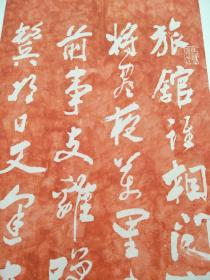 旅館誰相问
将尽夜萬里
前事支離笑
鬢明日又逢